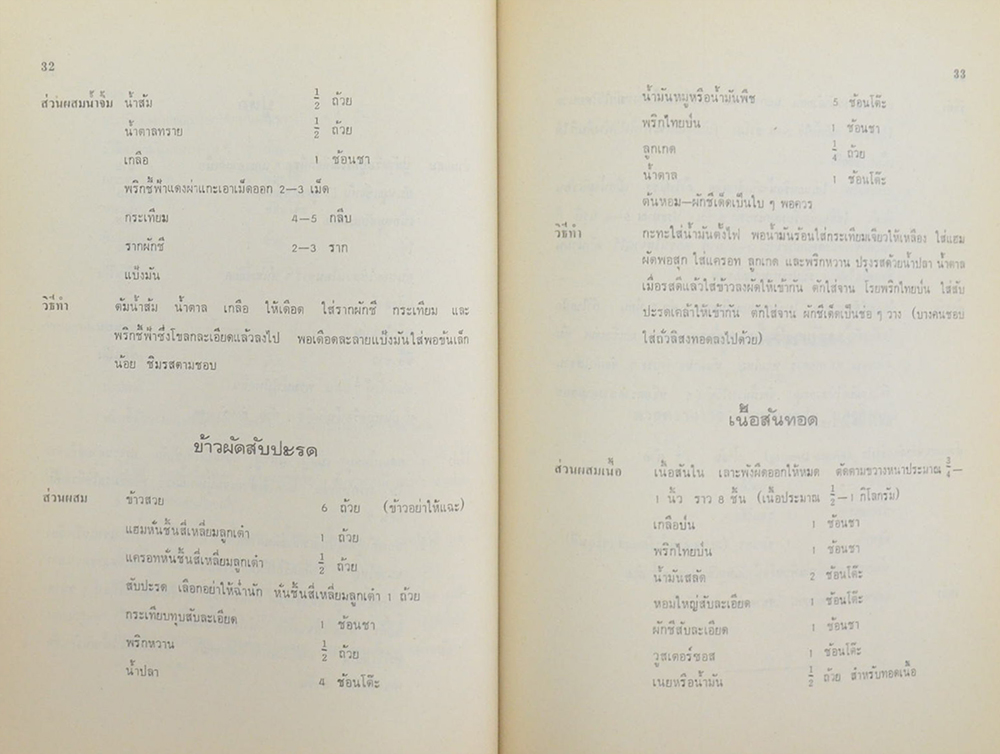 32
ส่วนผสมน้ำจิ้ม น้ำส้ม ½ ถ้วย
น้ำตาลทราย ½ ถ้วย
เกลือ 1 ช้อนชา
พริกชี้ฟ้าแดงผ่าแกะเอาเม็ดออก 2—3 เม็ด
กระเทียม 4—5 กลีบ
รากผักชี 2—3 ราก
แป้งมัน
วิธีทำ ต้มน้ำส้ม น้ำตาล เกลือ ให้เดือด ใส่รากผักชี กระเทียม และ
พริกชี้ฟ้าซึ่งโขลกละเอียดแล้วลงไป พอเดือดละลายแป้งมันใส่พอข้นเล็ก
น้อย ชิมรสตามชอบ
ข้าวผัดสับปะรด
ส่วนผสม ข้าวสวย 6 ถ้วย (ข้าวอย่าให้แฉะ)
แฮมหั่นชิ้นสี่เหลี่ยมลูกเต๋า 1 ถ้วย
แครอทหั่นชิ้นสี่เหลี่ยมลูกเต๋า ½ ถ้วย
สับปะรด เลือกอย่าให้ฉ่ำนัก หั่นชิ้นสี่เหลี่ยมลูกเต๋า 1 ถ้วย
กระเทียบทุบสับละเอียด 1 ช้อนชา
พริกหวาน ½ ถ้วย
น้ำปลา 4 ช้อนโต๊ะ
33
น้ำมันหมูหรือน้ำมันพืช 5 ช้อนโต๊ะ
พริกไทยป่น 1 ช้อนชา
ลูกเกด ¼ ถ้วย
น้ำตาล 1 ช้อนโต๊ะ
ต้นหอม—ผักชีเด็ดเป็นใบ ๆ พอควร
วิธีทำ กะทะใส่น้ำมันตั้งไฟ พอน้ำมันร้อนใส่กระเทียมเจียวให้เหลือง ใส่แฮม
ผัดพอสุก ใส่แครอท ลูกเกด และพริกหวาน ปรุงรสด้วยน้ำปลา น้ำตาล
เมื่อรสดีแล้วใส่ข้าวลงผัดให้เข้ากัน ตักใส่จาน โรยพริกไทยป่น ใส่สับ
ปะรดเคล้าให้เข้ากัน ตักใส่จาน ผักชีเด็ดเป็นช่อ ๆ วาง (บางคนชอบ
ใส่ถั่วลิสงทอดลงไปด้วย)
เนื้อสันทอด
ส่วนผสมเนื้อ เนื้อสันใน เลาะพังผืดออกให้หมด ตัดตามขวางหนาประมาณ ¾—
1 นิ้ว ราว 8 ชิ้น (เนื้อประมาณ ½—1 กิโลกรัม)
เกลือป่น 1 ช้อนชา
พริกไทยป่น 1 ช้อนชา
น้ำมันสลัด 2 ช้อนโต๊ะ
หอมใหญ่สับละเอียด 1 ช้อนโต๊ะ
ผักชีสับละเอียด 1 ช้อนชา
วูสเตอร์ซอส 1 ช้อนโต๊ะ
เนยหรือน้ำมัน ½ ถ้วย สำหรับทอดเนื้อ